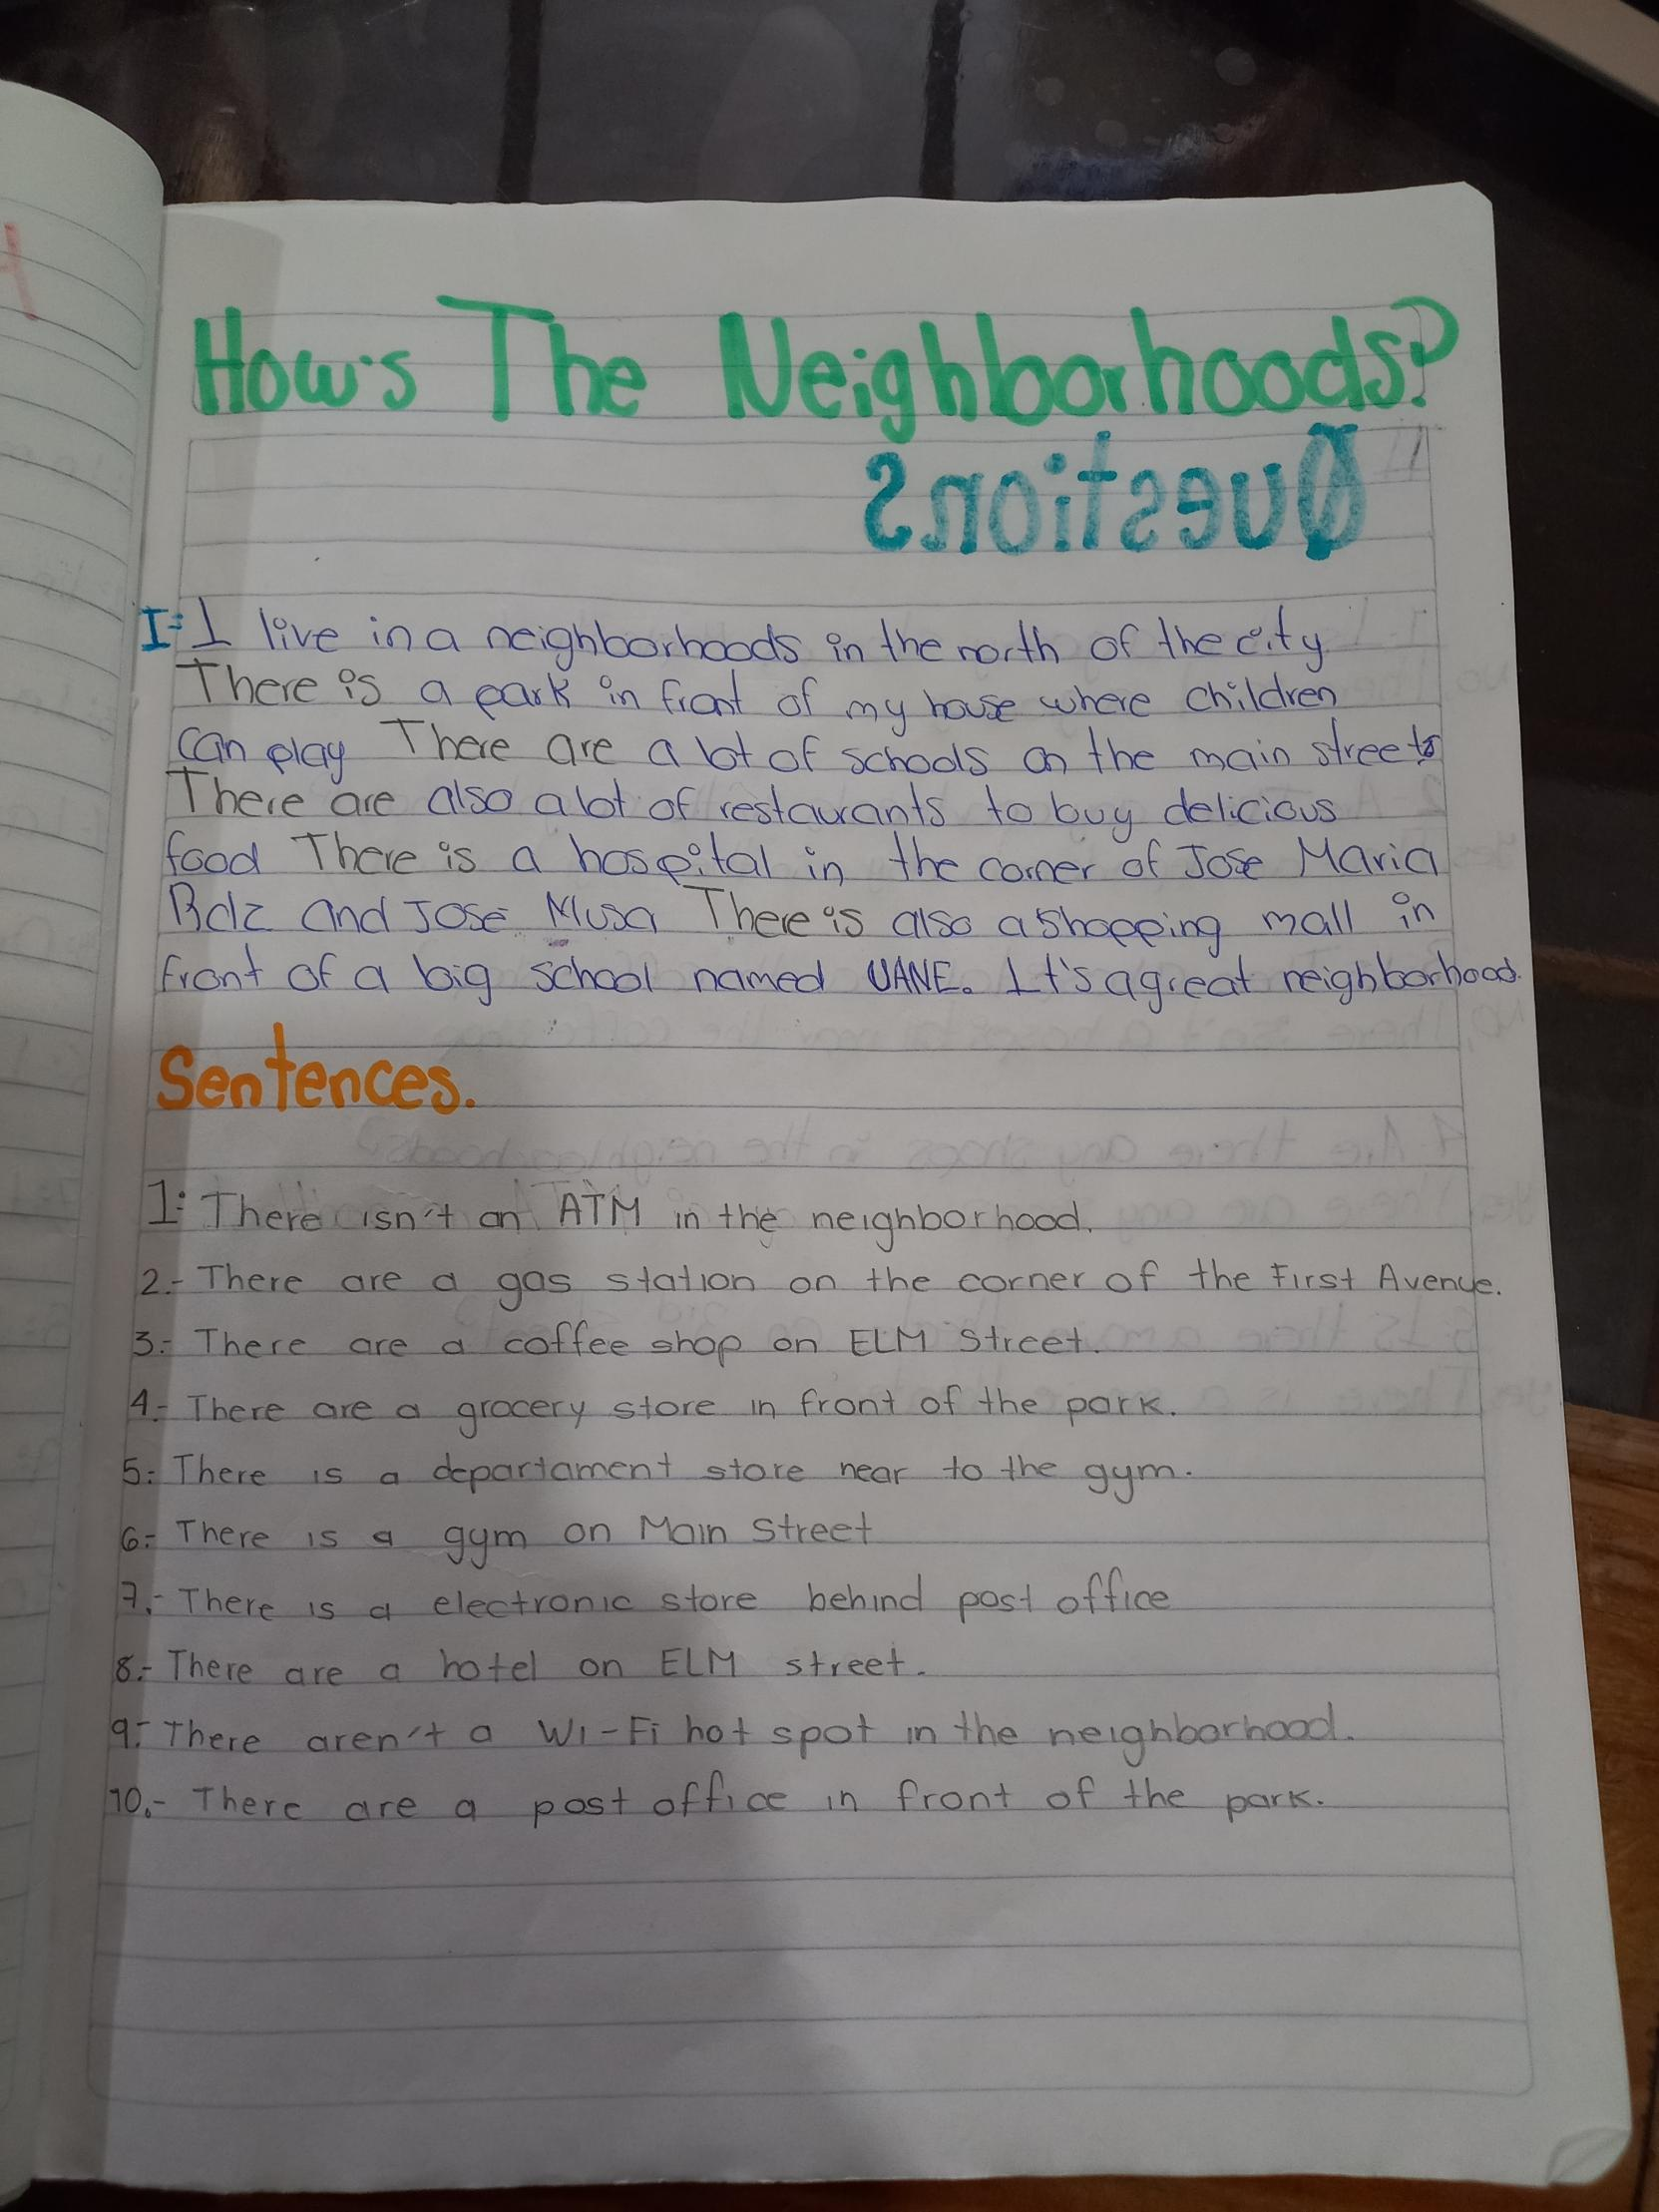 How's The Neighborhoods?
Questions
I= I live in a neighborhoods in the north of the city
There is a park in front of my house where children
can play There are a lot of schools on the main streets
There are also a lot of restaurants to buy delicious
food There is a hospital in the corner of Jose Maria
and Jose Musa There is also a shopping mall in
front of a big school named UANE. It's a great neighborhood.
Sentences.
1: There isn't an ATM in the neighborhood.
2.- There are a gas station on the corner of the First Avenue.
3.- There are a coffee shop on ELM Street.
4.- There are a grocery store in front of the park.
5.- There is a departament store near to the gym.
6.- There is a gym on Main Street
7.- There is a electronic store behind post office
8.- There are a hotel on ELM street.
9.- There aren't a Wi-Fi hot spot in the neighborhood.
10.- There are a post office in front of the park.